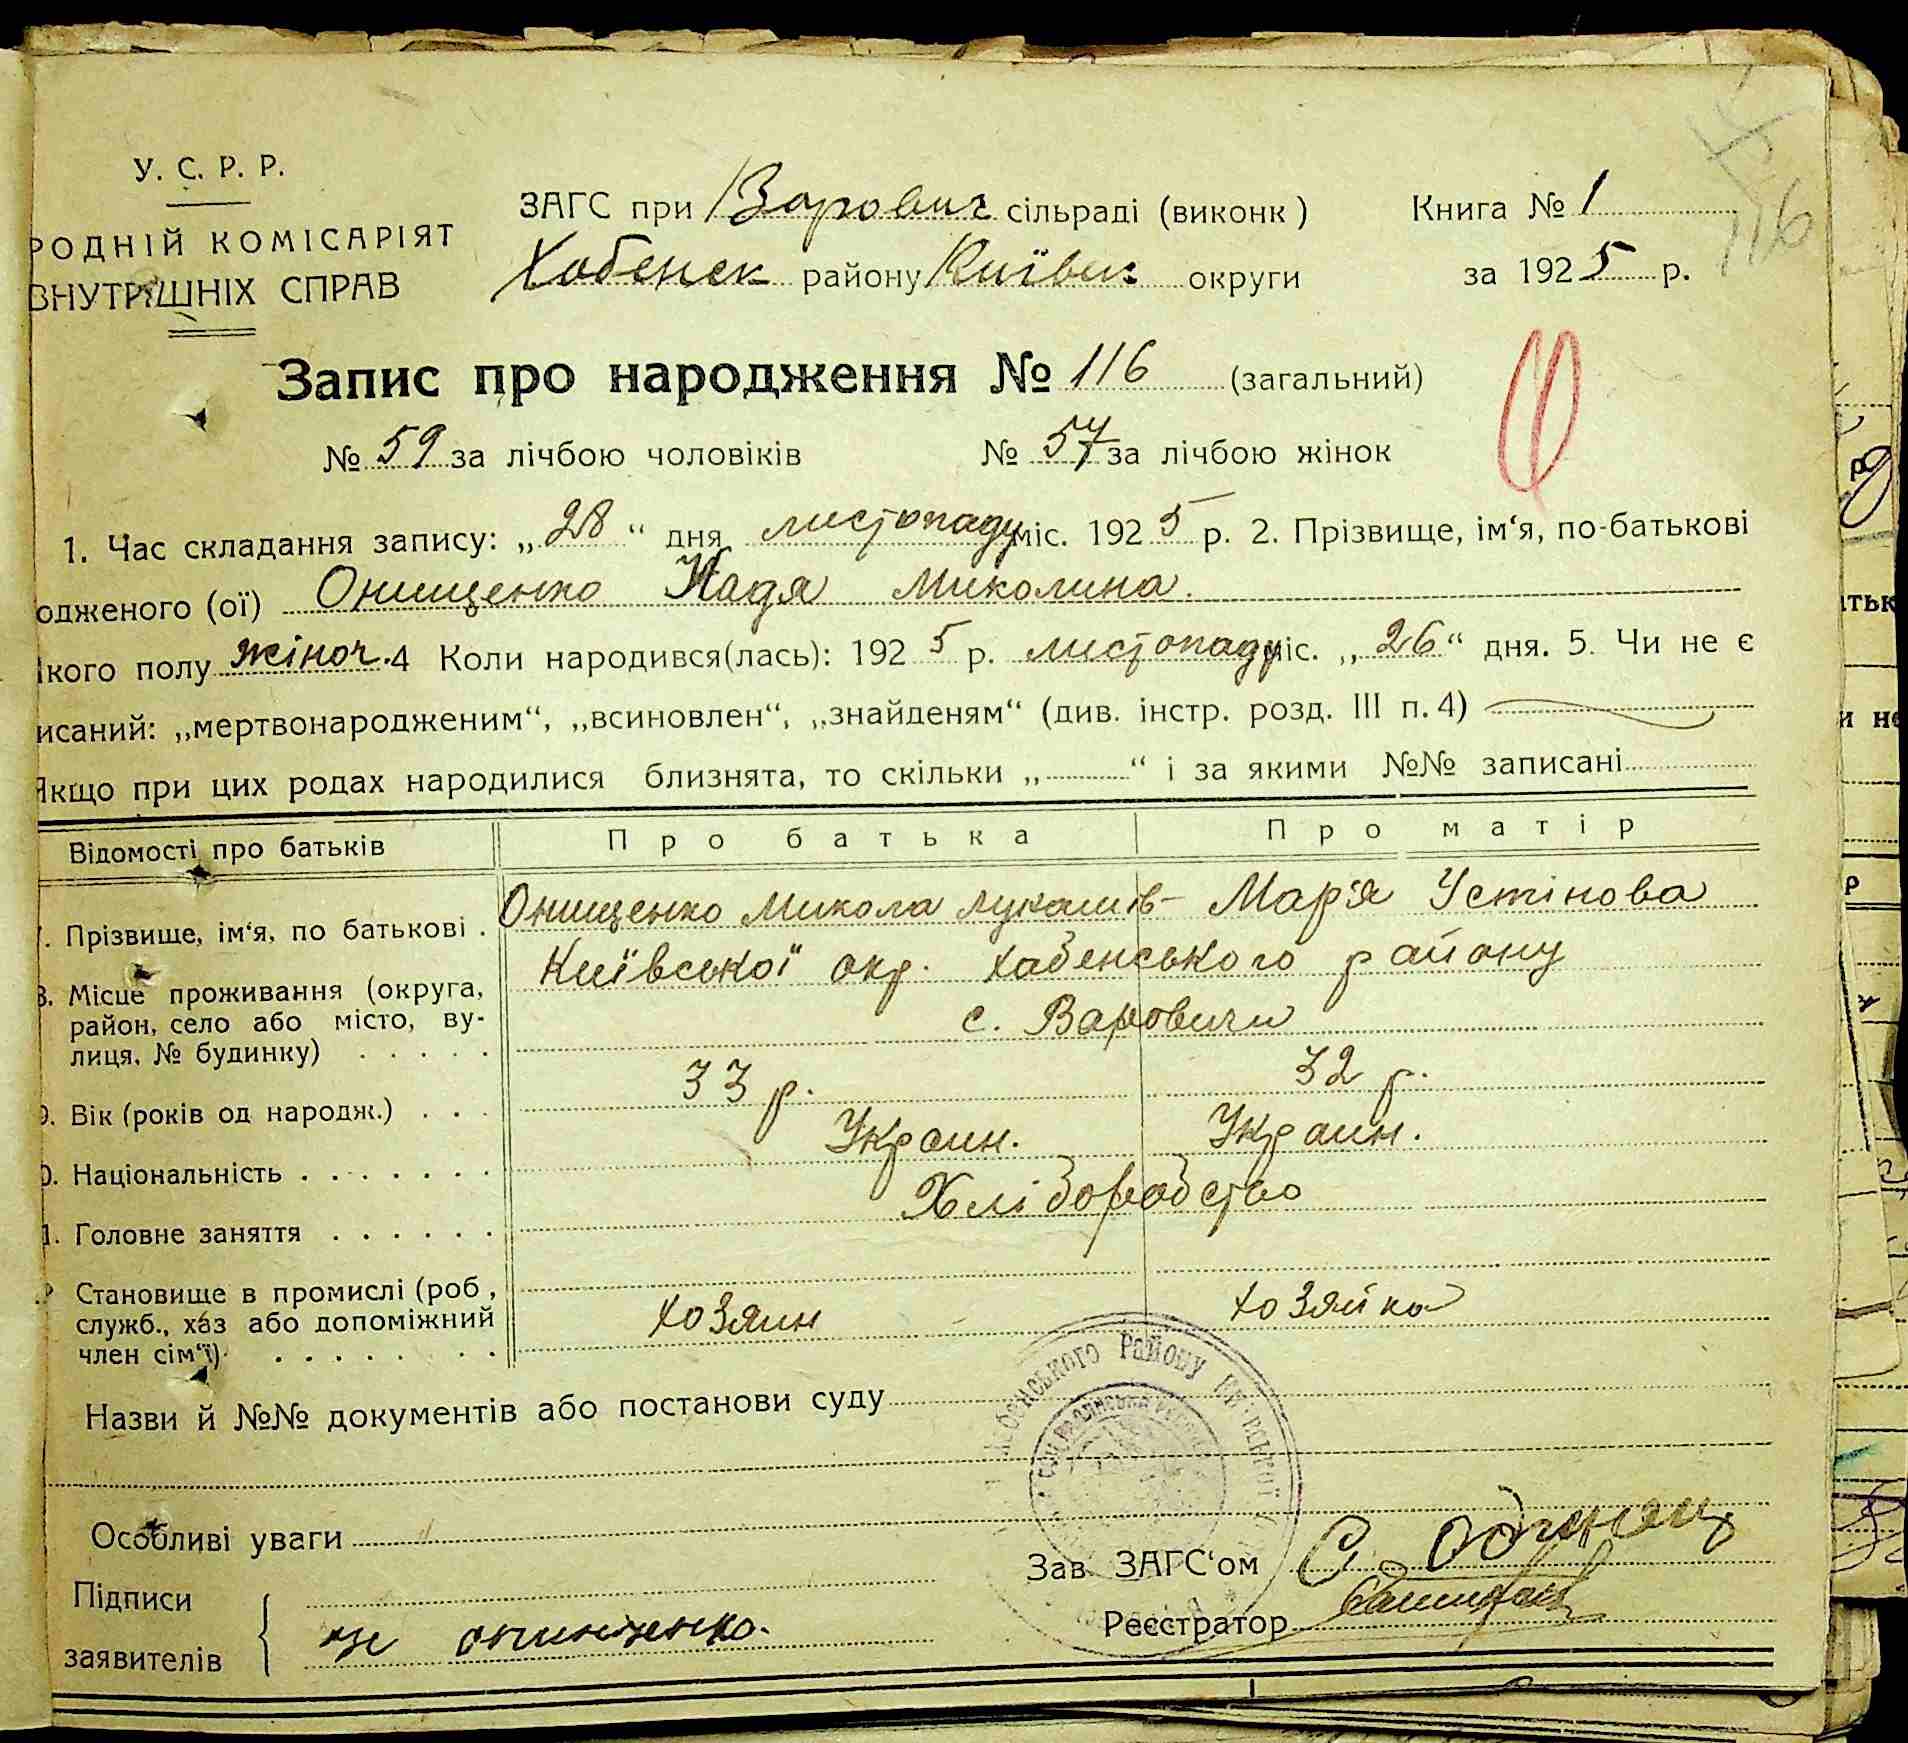 У. С. Р. Р.
РОДНІЙ КОМІСАРІЯТ
ВНУТРІШНІХ СПРАВ
ЗАГС при Варович сільраді (виконк)
Хабенск району Київск округи
Книга № 1
за 1925 р.
116
Запис про народження № 116 (загальний)
№ 59 за лічбою чоловіків № 57 за лічбою жінок
1. Час складання запису: „28“ дня листопаду міс. 1925 р. 2. Прізвище, ім‘я, по-батькові
одженого (ої) Онищенко Надя Миколина.
кого полу жіноч. 4 Коли народився(лась): 1925 р. листопаду міс. „26“ дня. 5. Чи не є
исаний: „мертвонародженим“, „всиновлен“, „знайденям“ (див. інстр. розд. III п. 4)
Якщо при цих родах народилися близнята, то скільки „ “ і за якими №№ записані
Відомості про батьків Про батька Про матір
7. Прізвище, ім‘я, по батькові . Онищенко Микола Лукашів- Мар'я Устінова
8. Місце проживання (округа, район, село або місто, вулиця, № будинку) . . . . . Київської окр. Хабенського району
с. Варовичи
9. Вік (років од народж.) . . . 33 р. 32 р.
0. Національність . . . . . . . Украин. Украин.
1. Головне заняття . . . . . . Хліборобство
Становище в промислі (роб, служб., хаз або допоміжний член сім‘ї) . . . . . . . хозяин хозяйка
Назви й №№ документів або постанови суду
Особливі уваги
Зав. ЗАГС‘ом
Підписи
заявителів
онищенко.
Реєстратор
Району